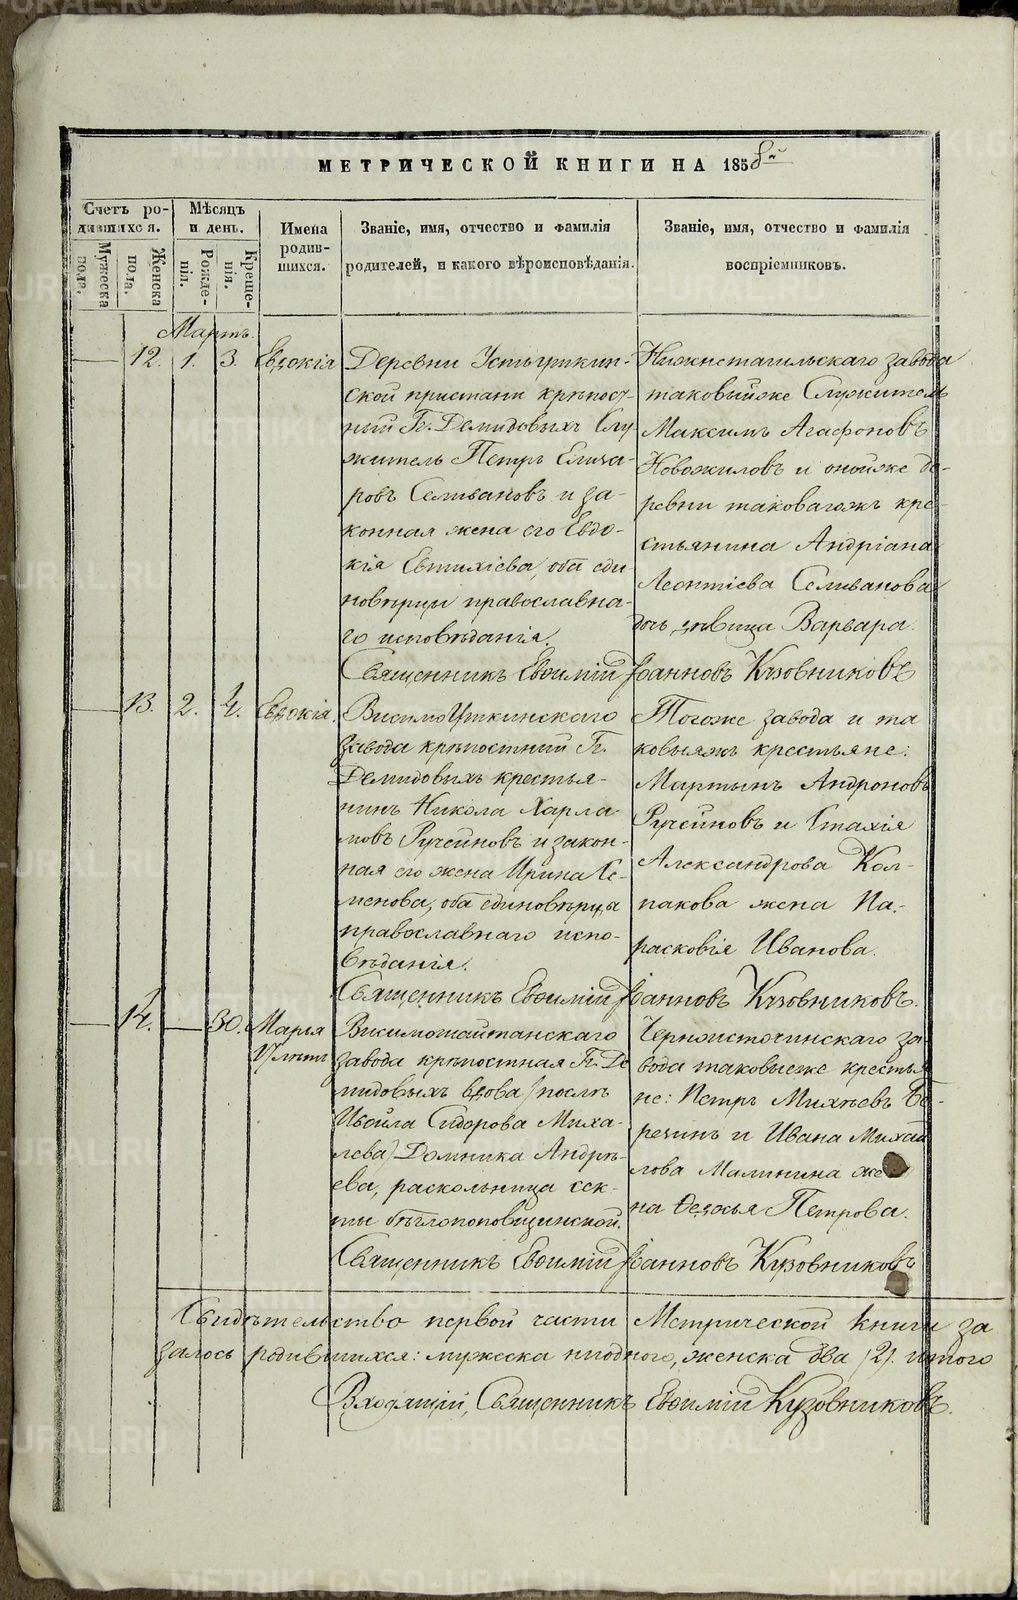 МЕТРИЧЕСКОЙ КНИГИ НА 1858й
Счетъ ро-
дившихся.
Мужеска
пола.
Женска
пола.
Мѣсяцъ
и день.
Рожде-
нія.
Креще-
нія.
Имена
родив-
шихся.
Званіе, имя, отчество и фамилія
родителей, и какого вѣроисповѣданія.
Званіе, имя, отчество и фамилія
воспріемниковъ.
Мартъ
12. 1. 3. Евдокія
Деревни Устьуткин-
ской пристани крѣпост-
ный Гг. Демидовыхъ Слу
житель Петръ Елиза-
ровъ Селивановъ и за-
конная жена его Евдо-
кія Евтихіева, оба еди
новѣрцы православна-
го исповѣданія.
Нижнетагильскаго завода
таковыйже Служитель
Максимъ Агафоновъ
Новожиловъ и онойже де-
ревни таковагожъ кре-
стьянина Андріана
Леонтіева Селиванова
дочь дѣвица Варвара.
Священникъ Евѳимій Іоанновъ Кузовниковъ
13. 2. 4. Евдокія.
Висимоуткинскаго
завода крѣпостный Гг.
Демидовыхъ крестья-
нинъ Никола Харла-
мовъ Ручейновъ и закон-
ная его жена Ирина Се-
менова, оба единовѣрцы
православнаго испо-
вѣданія.
Тогоже завода и та
ковыяжъ крестьяне:
Мартынъ Андроновъ
Ручейновъ и Стахія
Александрова Кол-
пакова жена Па-
расковія Иванова.
Священникъ Евѳимій Іоанновъ Кузовниковъ.
14. 30. Марья
Висимошайтанскаго
завода крѣпостная Гг. Де
мидовыхъ вдова /послѣ
Изойла Сидорова Миха-
лева/ Домника Андрѣ-
ева, раскольница сек-
ты бѣглопоповщинской.
Черноисточинскаго за-
вода таковыеже крестья
не: Петръ Михѣевъ Бе-
резинъ и Ивана Михай
лова Малинина же
на Ѳедосья Петрова.
Священникъ Евѳимій Іоанновъ Кузовниковъ
Свидѣтельство первой части Метрической книги за
залось родившихся: мужеска ниодного, женска два /2/. итого
Входящій, Священникъ Евѳимій Кузовниковъ.
METRIKI.GASO-URAL.RU